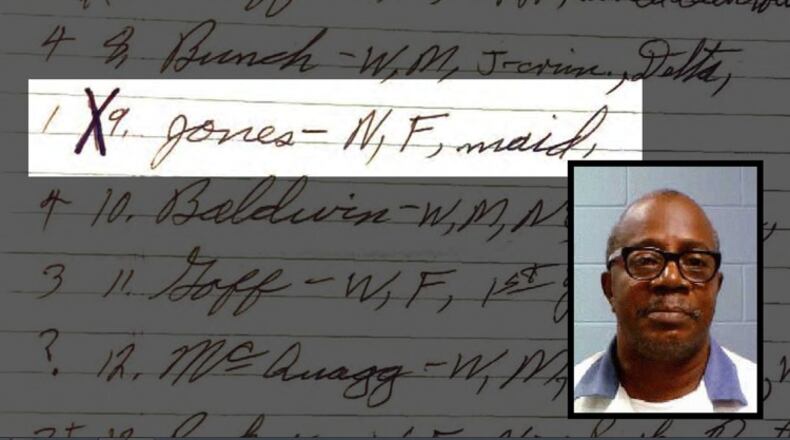 4 8, Bunch - W, M, J-crim., Delta,
1 X 9. Jones - N, F, maid,
4 10. Baldwin - W, M, N
3 11. Goff - W, F, 1st
? 12. McQuagg - W, M,